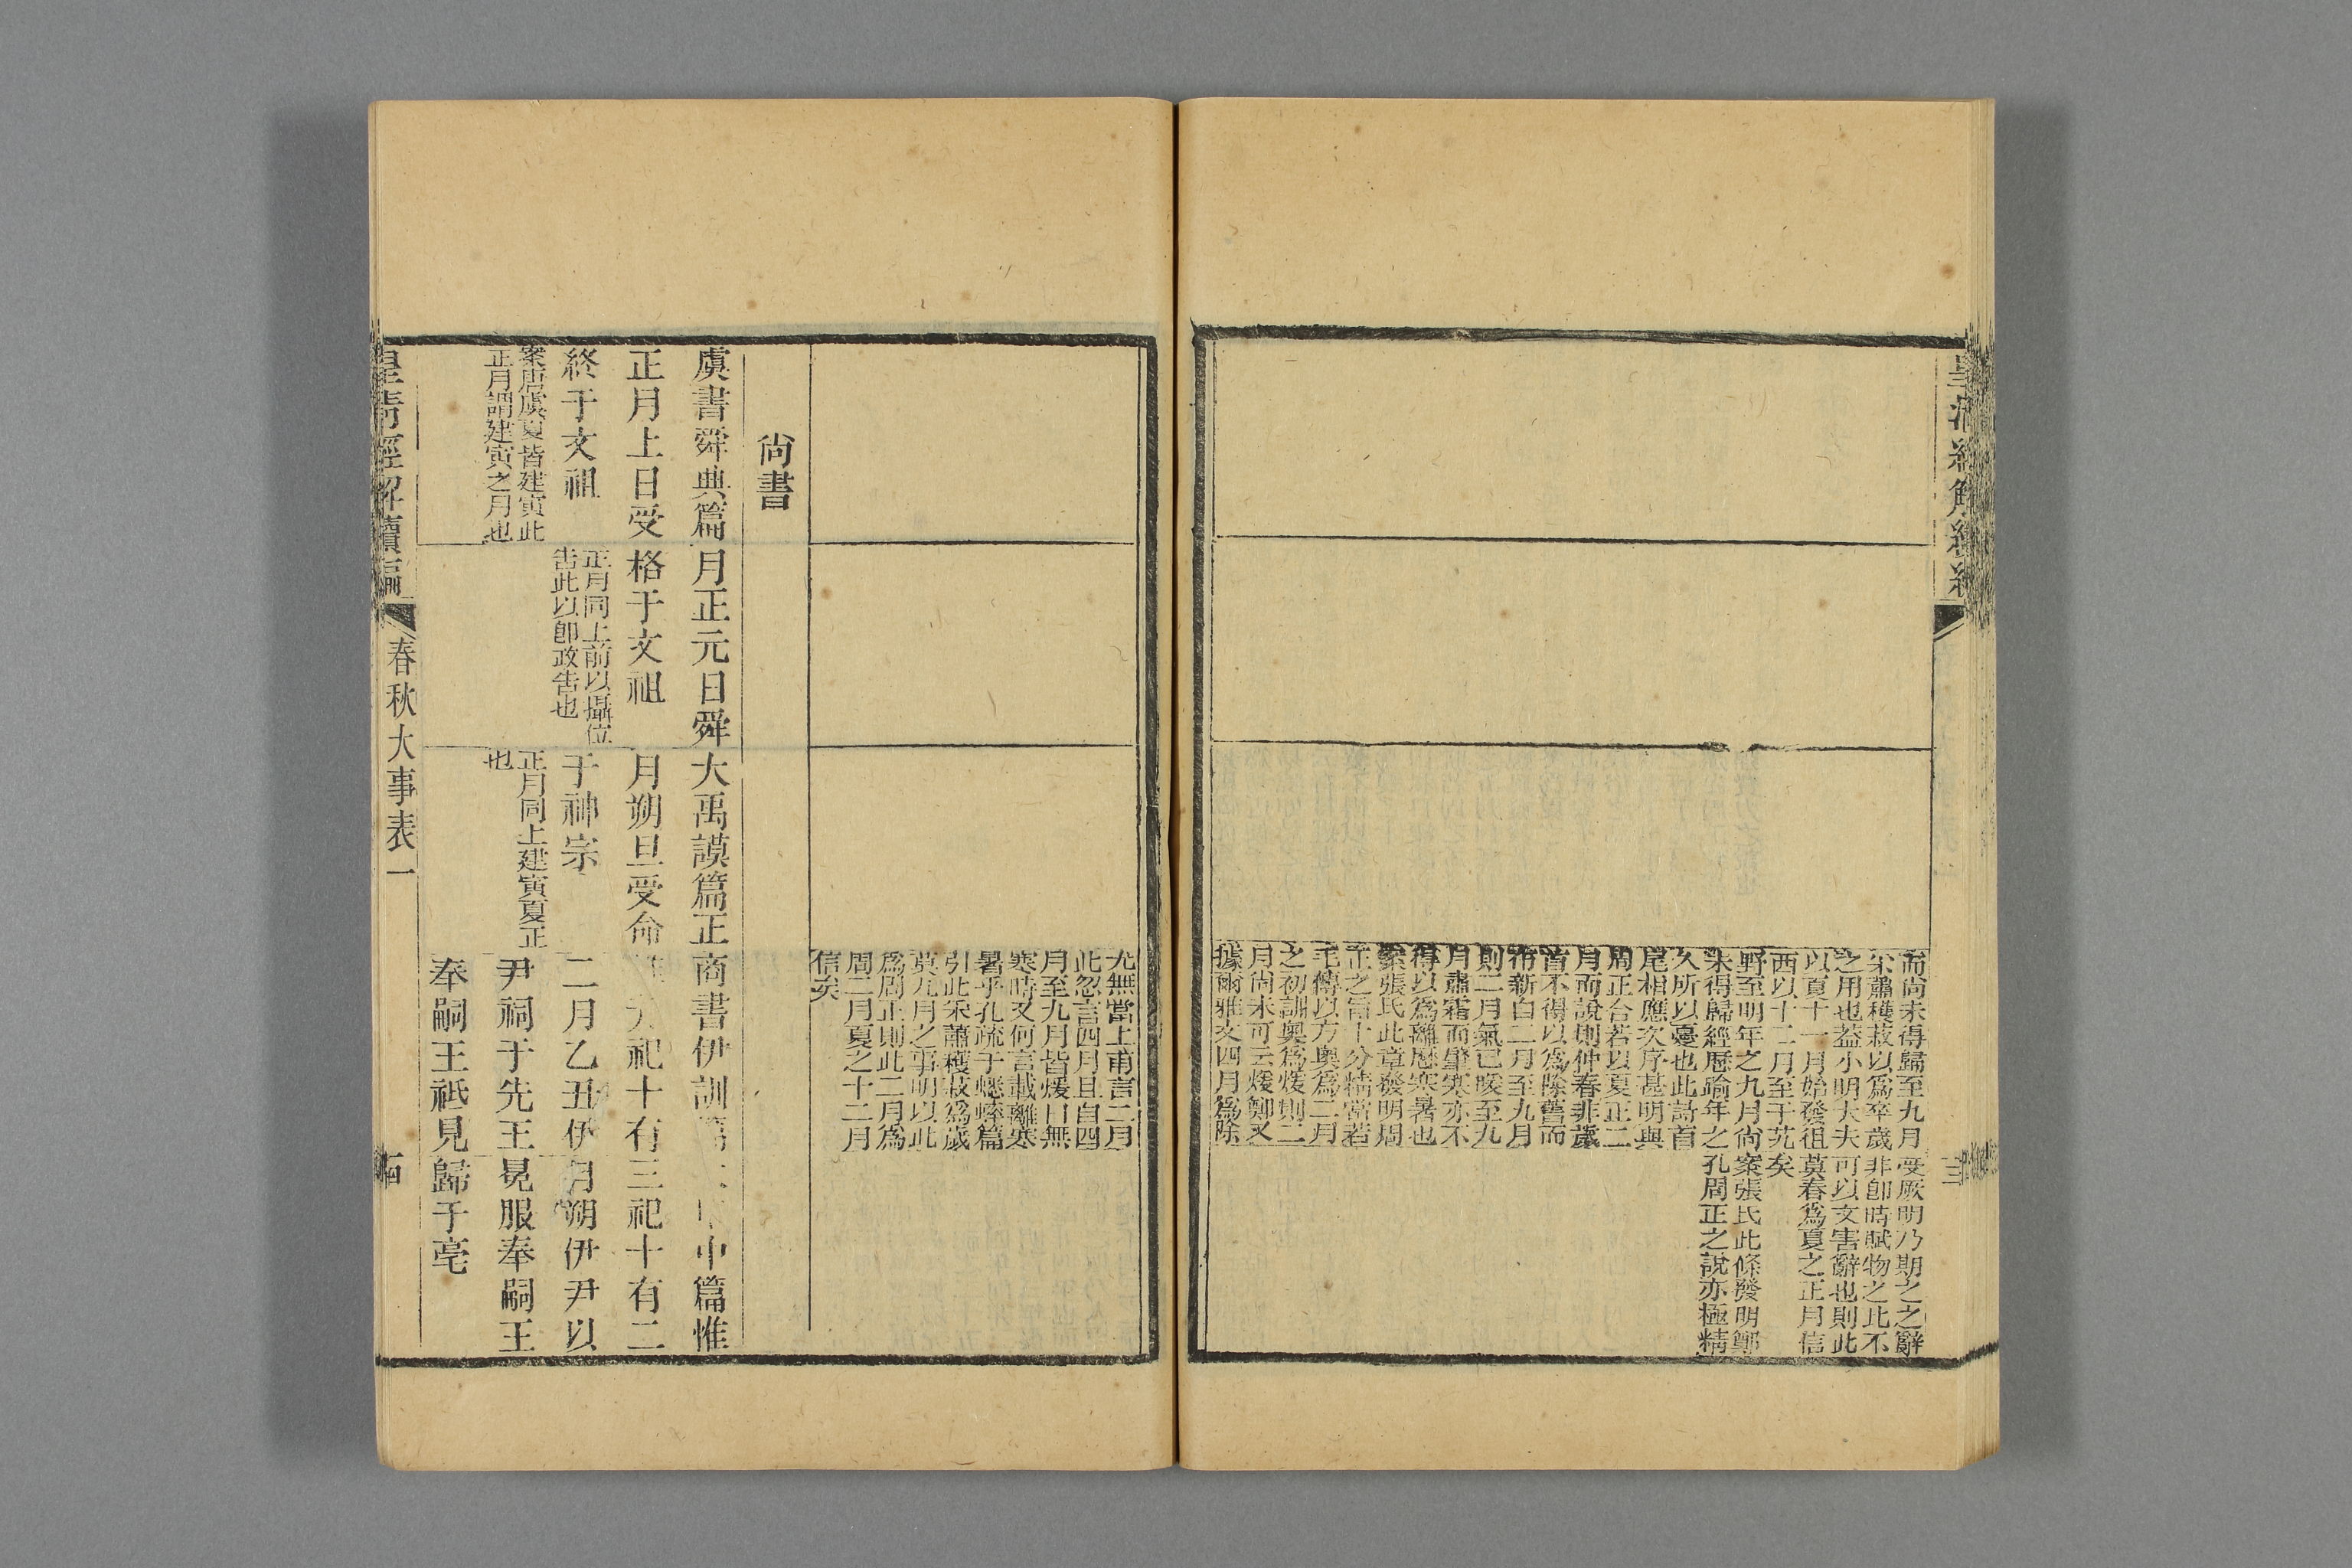 而尚未得歸至九月
采蕭穫菽以爲卒歲
之用也蓋小明大夫
以夏十一月始發徂
西以十二月至于艽
野至明年之九月尚
未得歸經歷踰年之
久所以憂也此詩首
尾相應次序甚明與
周正合若以夏正二
月而說則仲春非歲
首不得以爲除舊而
布新自二月至九月
則二月氣已暖至九
月肅霜而肇寒亦不
得以爲離歷寒暑也
案張氏此章發明周
正之旨十分精當若
毛傳以方奧爲二月
之初訓奧爲煖則二
月尚未可云煖鄭又
據爾雅文四月爲除
受厥明乃期之之辭
非卽時賦物之此不
可以文害辭也則此
莫春爲夏之正月信
矣
案張氏此條發明鄭
孔周正之說亦極精
尤無當上甫言二月
此忽言四月且自四
月至九月皆煖日無
寒時又何言載離寒
暑乎孔疏于蟋蟀篇
引此采蕭穫菽爲歲
莫九月之事明以此
爲周正則此二月爲
周二月夏之十二月
信矣
尚書
虞書舜典篇
正月上日受
終于文祖
案唐虞夏皆建寅此
正月謂建寅之月也
月正元日舜
格于文祖
正月同上前以攝位
告此以卽政告也
大禹謨篇正
月朔旦受命
于神宗
正月同上建寅夏正
也
商書伊訓篇
祀十有
二月乙丑伊
尹祠于先王
奉嗣王祗見
中篇惟
三祀十有二
月朔伊尹以
冕服奉嗣王
歸于亳
皇清經解續編
春秋大事表一